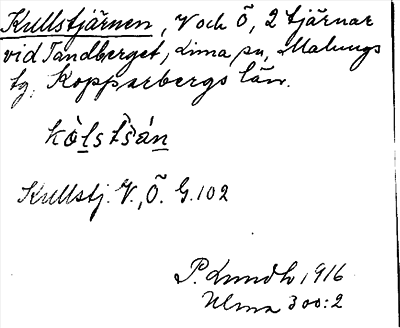 Kullstjärnen, V och Ö, 2 tjärnar
vid Tandberget, Lima sn, Malungs
tg. Kopparbergs län.
kòlstsán
Kullstj. V., Ö. G. 102
P. Lundh 1916
Ulma 300:2